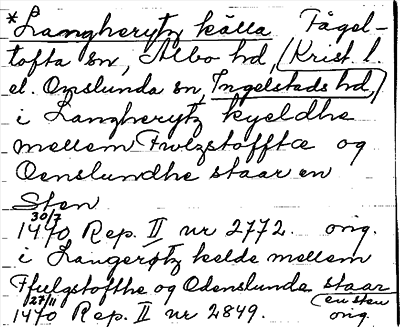 *Langherytz källa Fågel-
tofta sn, Albo hd, (Krist. l.
el. Onslunda sn, Ingelstads hd,)
i Langherytz kyeldhe
mellem Fwlzstofftæ og
Oenslundhe staar en
Sten
30/7
1470 Rep. II nr 2772. orig.
i Langerøtz kelde mellem
Ffulgstofthe og Odenslunda staar
en sten
27/11
1470 Rep. II nr 2849. orig.